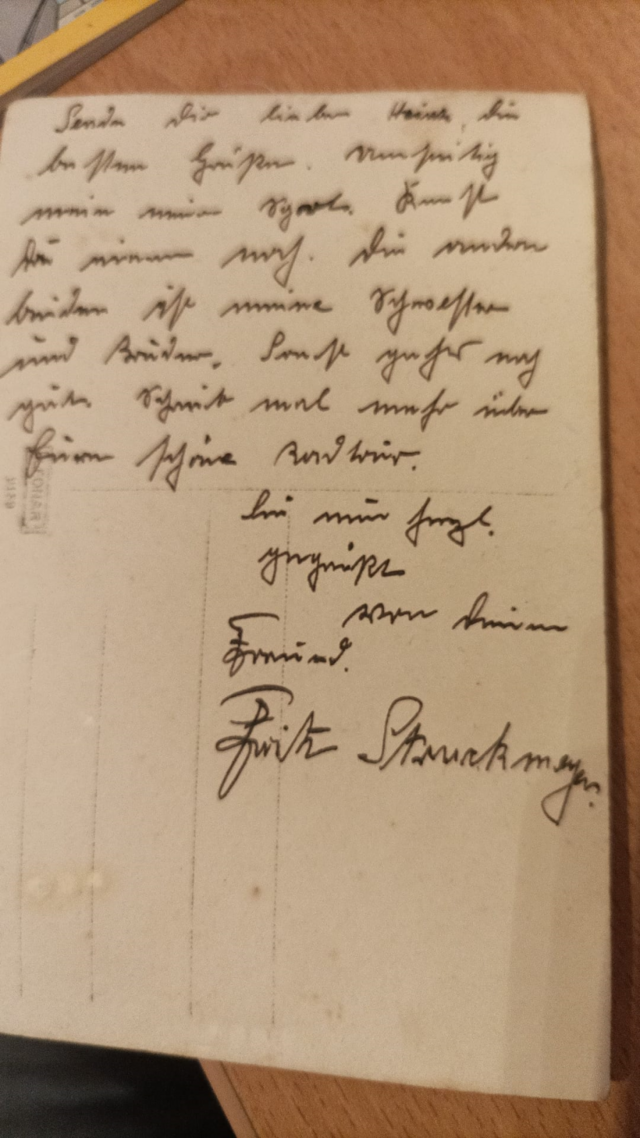 Sende Dir lieber Heinz, die
besten Grüße. Umseitig
mein
Du einen noch. Die andern
beiden ist meine Schwester
und Bruder. Sonst geht's noch
gut. Schreib mal mehr über
Eure schöne Radtour.
Sei nun herzl.
gegrüßt
von Deinem
Freund.
Fritz Struckmeyer.